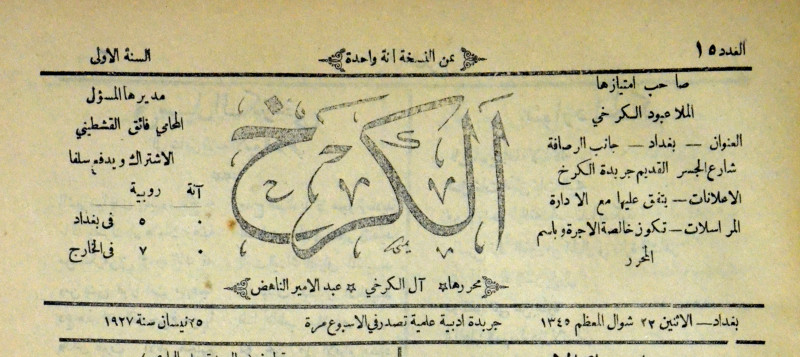 العدد ١٥
ثمن النسخة آنة واحدة
السنة الاولى
صاحب امتيازها
الملا عبود الكرخي
العنوان — بغداد — جانب الرصافة
شارع الجسر القديم جريدة الكرخ
الاعلانات — يتفق عليها مع الادارة
المراسلات — تكون خالصة الاجرة وباسم
المحرر
الكرخ
مديرها المسؤل
المحامي فائق القشطيني
الاشتراك ويدفع سلفا
آنة روبية
٠ ٥ في بغداد
٠ ٧ في الخارج
محررها * آل الكرخي * عبد الامير الناهض
بغداد — الاثنين ٢٢ شوال المعظم ١٣٤٥
جريدة ادبية علمية تصدر في الاسبوع مرة
٢٥ نيسان سنة ١٩٢٧